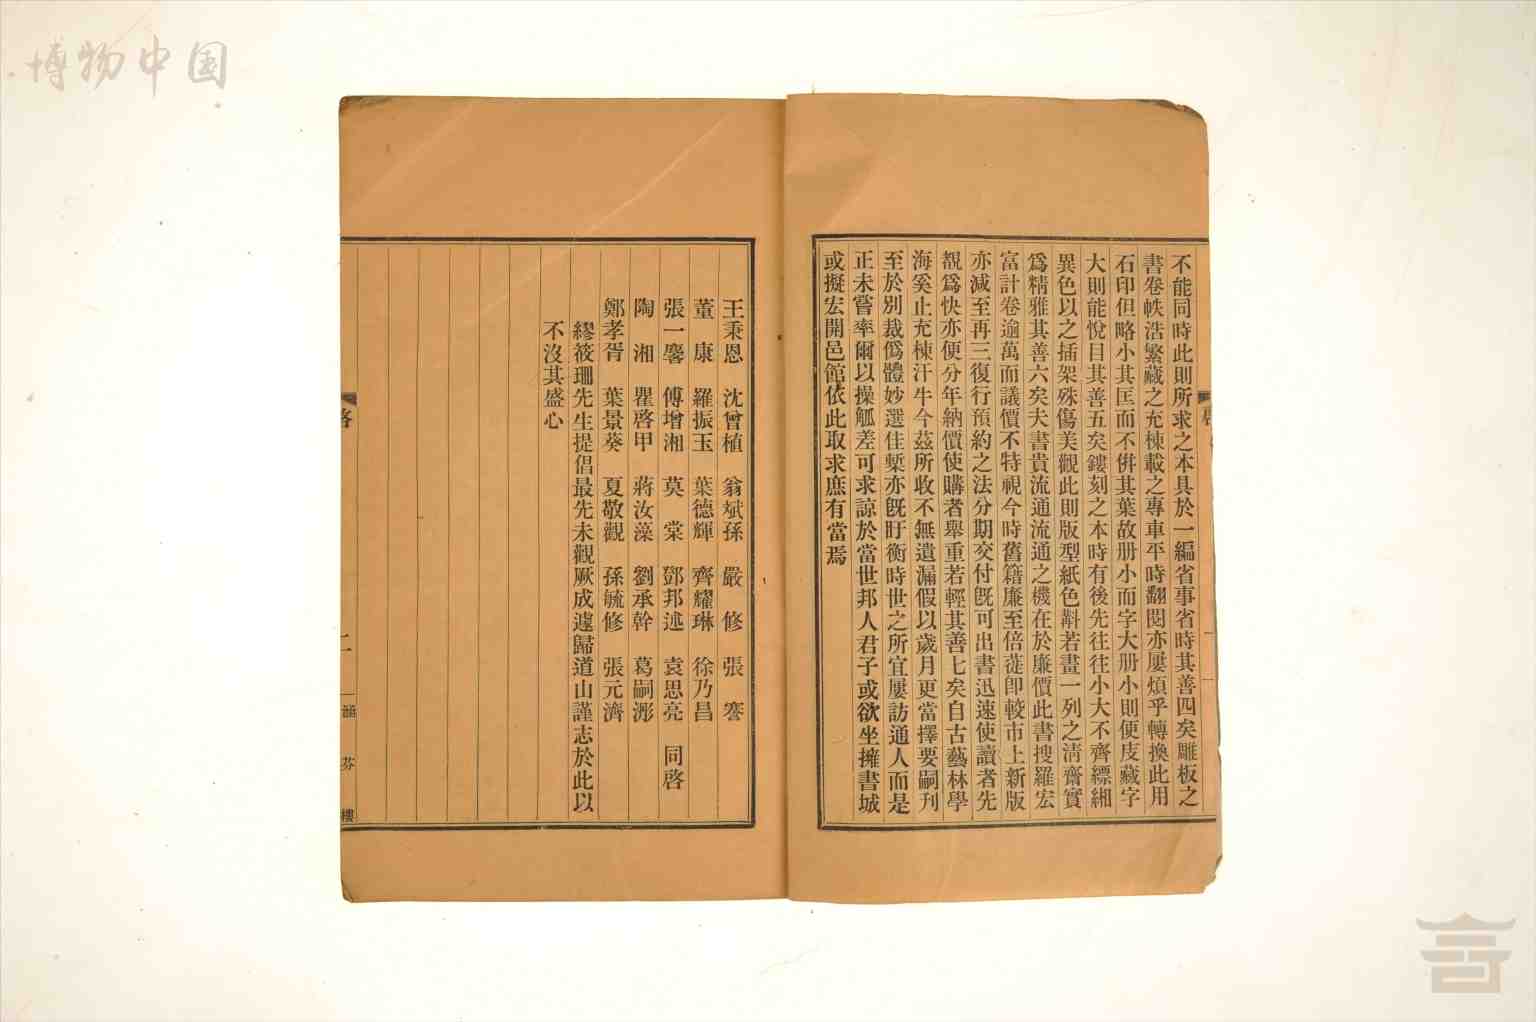 博物中国
不能同時此則所求之本具於一編省事省時其善四矣雕板之
書卷帙浩繁藏之充棟載之專車平時翻閱亦屢煩乎轉換此用
石印但略小其匡而不併其葉故册小而字大册小則便庋藏字
大則能悅目其善五矣鏤刻之本時有後先往往小大不齊縹緗
異色以之插架殊傷美觀此則版型紙色斠若畫一列之清齋實
爲精雅其善六矣夫書貴流通流通之機在於廉價此書搜羅宏
富計卷逾萬而議價不特視今時舊籍廉至倍蓰卽較市上新版
亦減至再三復行預約之法分期交付旣可出書迅速使讀者先
覩爲快亦便分年納價使購者舉重若輕其善七矣自古藝林學
海奚止充棟汗牛今茲所收不無遺漏假以歲月更當擇要嗣刊
至於別裁僞體妙選佳槧亦旣盱衡時世之所宜屢訪通人而是
正未嘗率爾以操觚差可求諒於當世邦人君子或欲坐擁書城
或擬宏開邑館依此取求庶有當焉
王秉恩 沈曾植 翁斌孫 嚴修 張謇
董康 羅振玉 葉德輝 齊耀琳 徐乃昌
張一麐 傅增湘 莫棠 鄧邦述 袁思亮 同啓
陶湘 瞿啓甲 蔣汝藻 劉承幹 葛嗣浵
鄭孝胥 葉景葵 夏敬觀 孫毓修 張元濟
繆筱珊先生提倡最先未觀厥成遽歸道山謹志於此以
不沒其盛心
啓
二
涵芬樓